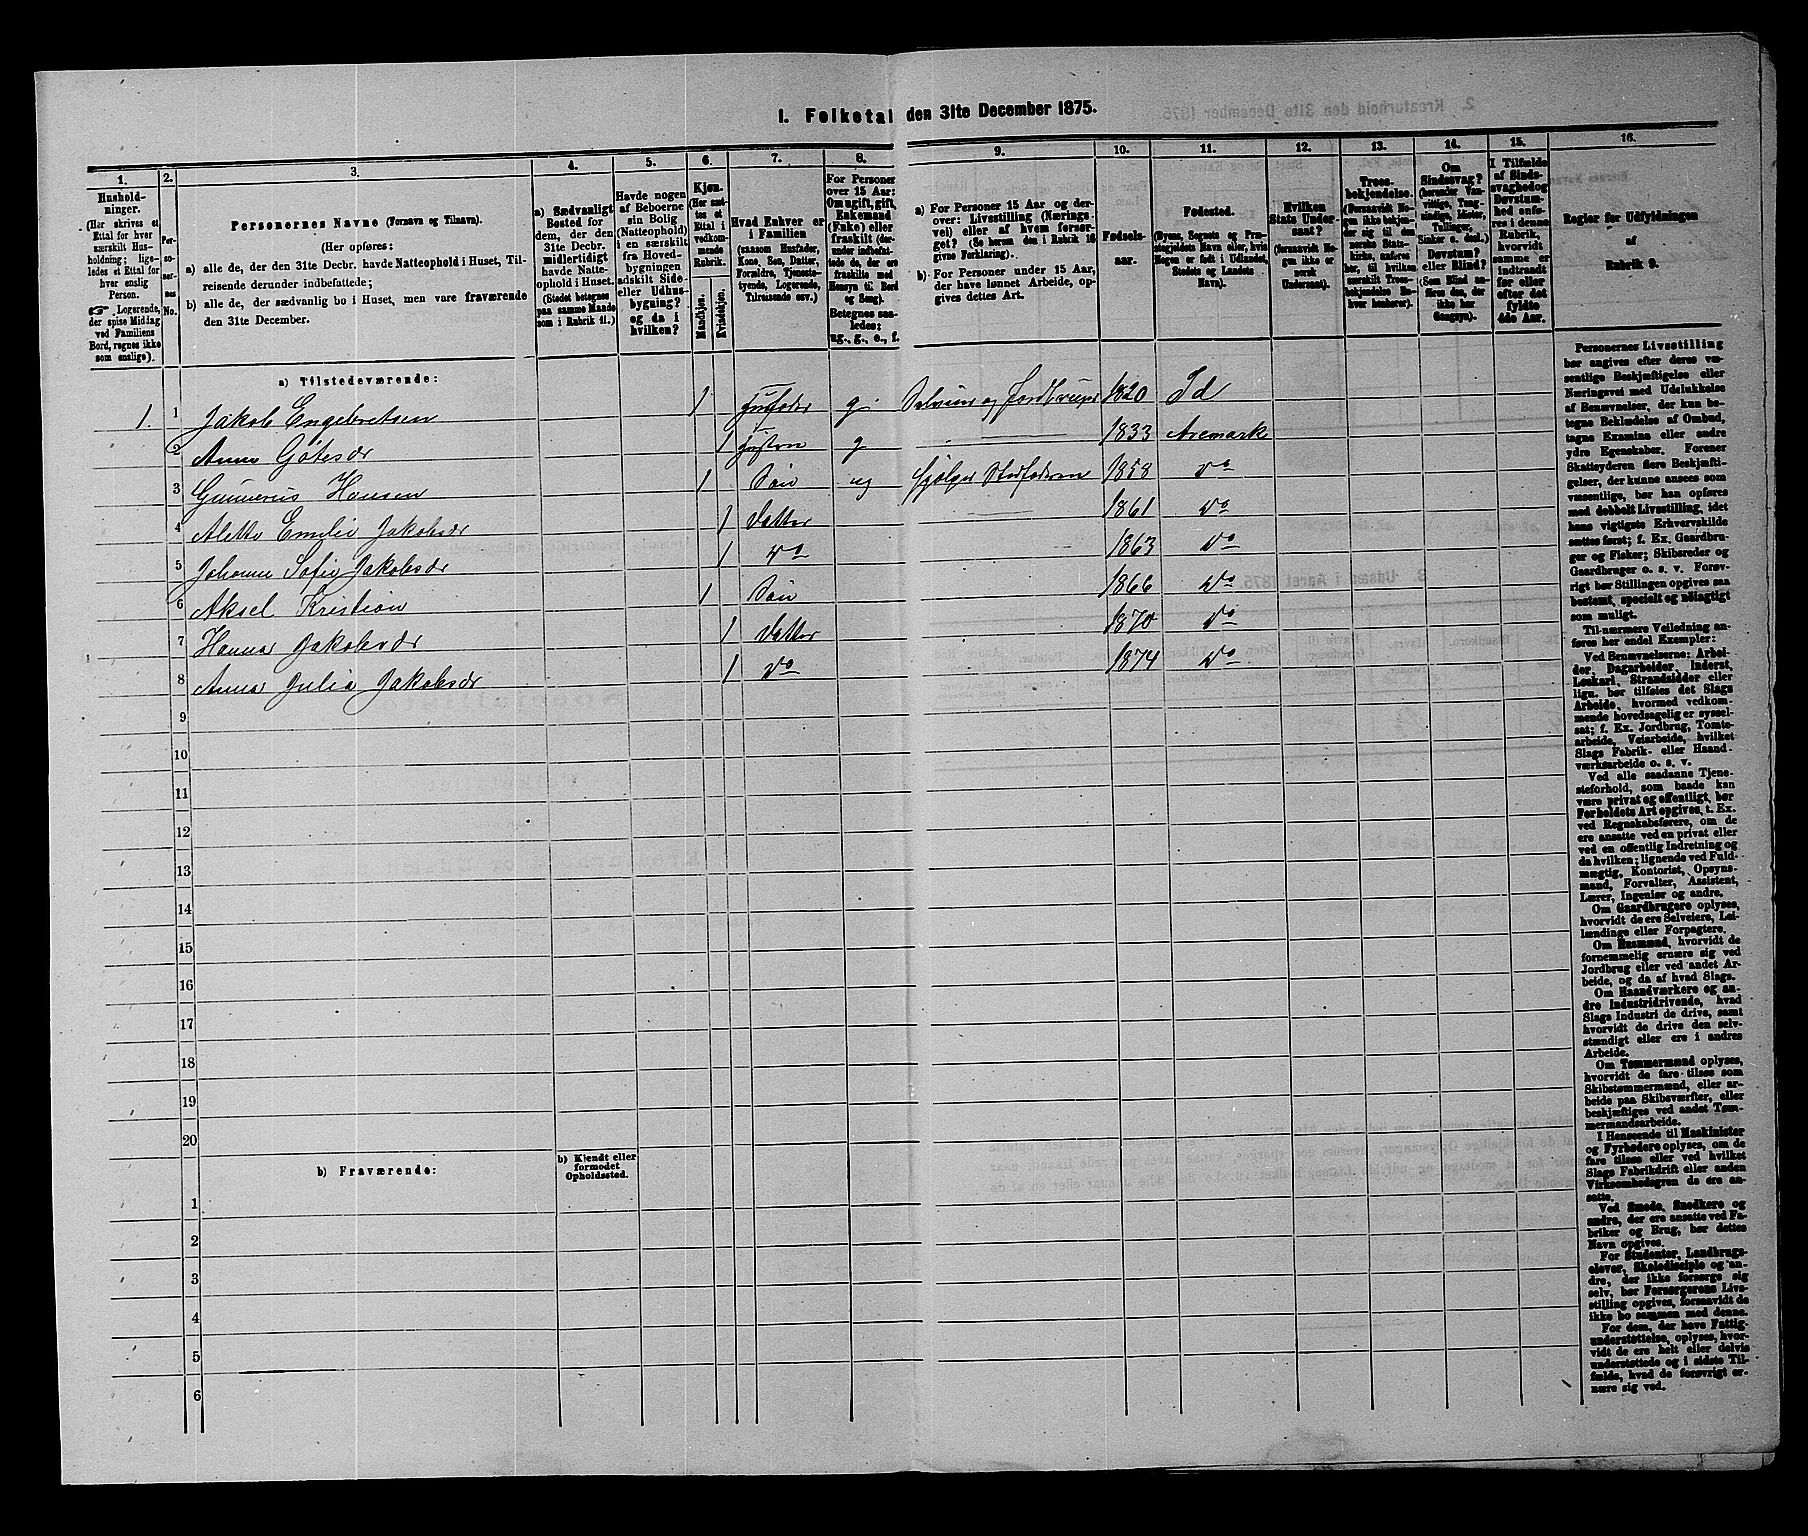 I. Folketal den 31te December 1875.
1.
Hushold-
ninger.
(Her skrives et
Ettal for hver
særskilt Hus-
holdning; lige-
ledes et Ettal for
hver enslig
Person.
☞ Logerende,
der spise Middag
ved Familiens
Bord, regnes ikke
som enslige).
2.
Per-
so-
ner-
nes
No.
3.
Personernes Navne (Fornavn og Tilnavn).
(Her opføres:
a) alle de, der den 31te Decbr. havde Natteophold i Huset, Til-
reisende derunder indbefattede;
b) alle de, der sædvanlig bo i Huset, men vare fraværende
den 31te December.
4.
a) Sædvanligt
Bosted for
dem, der den
31te Decbr.
midlertidigt
havde Natte-
ophold i Huset.
(Stedet betegnes
paa samme Maade
som i Rubrik 11.)
5.
Havde nogen
af Beboerne
sin Bolig
(Natteophold)
i en særskilt
fra Hoved-
bygningen
adskilt Side-
eller Udhus-
bygning?
og da i
hvilken?
6.
Kjøn.
(Her sæt-
tes et
Ettal i
vedkom-
mende
Rubrik.
Mandkjøn.
Kvindekjøn.
7.
Hvad Enhver er
i Familien
(saasom Husfader,
Kone, Søn, Datter,
Forældre, Tjeneste-
tyende, Logerende,
Tilreisende osv.)
8.
For Personer
over 15 Aar:
Om ugift, gift,
Enkemand
(Enke) eller
fraskilt (der-
under indbefat-
tede de, der ere
fraskilte med
Hensyn til Bord
og Seng).
Betegnes saa-
ledes:
ug., g., e., f.
9.
a) For Personer 15 Aar og der-
over: Livsstilling (Nærings-
vei) eller af hvem forsør-
get? (Se herom den i Rubrik 16
givne Forklaring).
b) For Personer under 15 Aar,
der have lønnet Arbeide, op-
gives dettes Art.
10.
Fødsels-
aar.
11.
Fødested.
(Byens, Sognets og Præ-
stegjeldets Navn eller, hvis
Nogen er født i Udlandet,
Stedets og Landets
Navn).
12.
Hvilken
Stats Under-
saat?
(forsaavidt No-
gen ikke er
norsk
Undersaat).
13.
Troes-
bekjendelse.
(Forsaavidt No-
gen ikke bekjen-
der sig til den
norske Stats-
kirke, anføres
her, til hvilken
særskilt Troes-
bekjendelse En-
hver henhører).
14.
Om
Sindssvag?
(herunder Van-
vittige, Tung-
sindige, Idioter,
Sinker o. desl.)
Døvstum?
eller Blind?
(Som Blind an-
føres den, der
ikke har
Gangsyn).
15.
I Tilfælde
af Sinds-
svaghed og
Døvstum-
hed anfø-
res i denne
Rubrik,
hvorvidt
samme er
indtraadt
før eller
efter det
fyldte
4de Aar.
16.
Regler for Udfyldningen
af
Rubrik 9.
a) Tilstedeværende:
1. 1 Jakob Engebretsen 1 Husfader g Selveier og Jordbruger 1820 Id
2 Anne Götesdr 1 Hustru g 1833 Aremark
3 Gunnerus Hansen 1 Søn ug hjælper Stedfaderen 1858 Do
4 Alette Emilie Jakobsdr 1 Datter 1861 Do
5 Johanne Sofie Jakobsdr 1 Do 1863 Do
6 Aksel Kristian 1 Søn 1866 Do
7 Hanna Jakobsdr 1 Datter 1870 Do
8 Anna Julia Jakobsdr 1 Do 1874 Do
9
10
11
12
13
14
15
16
17
18
19
20
b) Fraværende:
b) Kjendt eller
formodet
Opholdssted.
1
2
3
4
5
6
Personernes Livsstilling
bør angives efter deres væ-
sentlige Beskjæftigelse eller
Næringsvei med Udelukkelse
af Benævnelser, der kun be-
tegne Beklædelse af Ombud,
tagne Examina eller andre
ydre Egenskaber. Forener
Skatteyderen flere Beskjæfti-
gelser, der kunne ansees som
væsentlige, bør han opføres
med dobbelt Livsstilling, idet
hans vigtigste Erhvervskilde
sættes først; f. Ex. Gaardbru-
ger og Fisker; Skibsreder og
Gaardbruger o. s. v. Forøv-
rigt bør Stillingen opgives saa
bestemt, specielt og nøiagtigt
som muligt.
Til nærmere Veiledning an-
føres her endel Exempler:
Ved Benævnelserne: Arbei-
der, Dagarbeider, Inderst,
Løskarl, Strandsidder eller
lign. bør tilføies det Slags
Arbeide, hvormed vedkom-
mende hovedsagelig er syssel-
sat; f. Ex. Jordbrug, Tomte-
arbeide, Veiarbeide, hvilket
Slags Fabrik- eller Haand-
værksarbeide o. s. v.
Ved alle saadanne Tjene-
steforhold, som baade kan
være privat og offentligt, bør
Forholdets Art opgives, t. Ex.
ved Regnskabsførere, om de
ere ansatte ved en privat eller
ved en offentlig Indretning og
da hvilken; lignende ved Fuld-
mægtig, Kontorist, Opsyns-
mand, Forvalter, Assistent,
Lærer, Ingeniør og andre.
Om Gaardbrugere oplyses,
hvorvidt de ere Selveiere, Lei-
lændinge eller Forpagtere.
Om Husmænd, hvorvidt de
fornemmelig ernære sig ved
Jordbrug eller ved andet Ar-
beide, og da af hvad Slags.
Om Haandværkere og an-
dre Industridrivende, hvad
Slags Industri de drive, samt
hvorvidt de drive den selv-
stændigt eller ere i andres
Arbeide.
Om Tømmermænd oplyses,
hvorvidt de fare tilsøs som
Skibstømmermænd, eller ar-
beide paa Skibsværfter, eller
beskjæftiges ved andet Tøm-
mermandsarbeide.
I Henseende til Maskinister
og Fyrbødere oplyses, om de
fare tilsøs eller ved hvilket
Slags Fabrikdrift eller anden
Virksomhedsgren de ere an-
satte.
Ved Smede, Snedkere og
andre, der ere ansatte ved Fa-
briker og Brug, bør dettes
Navn opgives.
For Studenter, Landbrugs-
elever, Skoledisciple og an-
dre, der ikke forsørge sig
selv, bør Forsørgerens Livs-
stilling opgives, forsaavidt de
ikke bo sammen med denne.
For dem, der have Fattig-
understøttelse, oplyses, hvor-
vidt de ere helt eller delvis
understøttede og i sidste Til-
fælde, hvad de forøvrigt er-
nære sig ved.